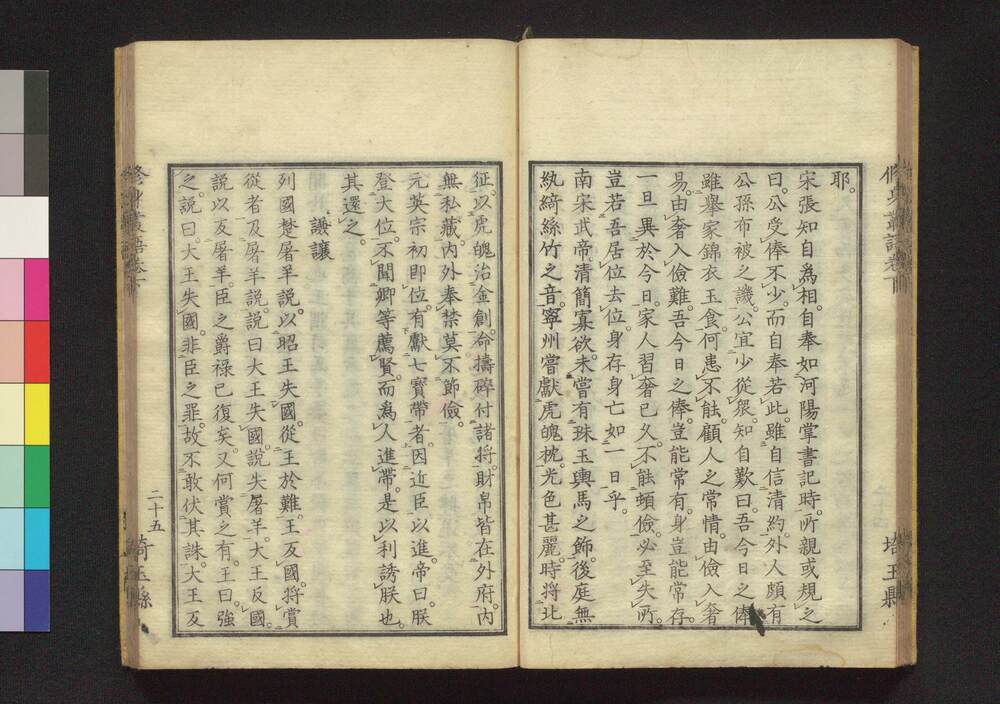 耶。
宋張知白爲相。自奉如河陽掌書記時。所親或規之
曰。公受俸不少。而自奉若此。雖自信清約。外人頗有
公孫布被之譏。公宜少從衆。知白歎曰。吾今日之俸
雖擧家錦衣玉食。何患不能。顧人之常情。由儉入奢
易。由奢入儉難。吾今日之俸。豈能常有。身豈能常存。
一旦異於今日。家人習奢已久。不能頓儉。必至失所。
豈若吾居位去位。身存身亡如一日乎。
南宋武帝。清簡寡欲。未嘗有珠玉輿馬之飾。後庭無
紈綺絲竹之音。寧州嘗獻虎魄枕。光色甚麗。時將北
征。以虎魄治金創。命擣碎付諸將。財帛皆在外府。內
無私藏。內外奉禁莫不節儉。
元英宗初即位。有獻七寶帶者。因近臣以進。帝曰。朕
登大位。不聞卿等薦賢。而爲人進帶。是以利誘朕也。
其還之。
謙讓
列國楚屠羊說。以昭王失國。從王於難。王反國。將賞
從者及屠羊說。說曰大王失國。說失屠羊。大王反國。
說以反屠羊。臣之爵祿已復矣。又何賞之有。王曰。強
之。說曰。大王失國。非臣之罪。故不敢伏其誅。大王反
二十五
埼玉縣